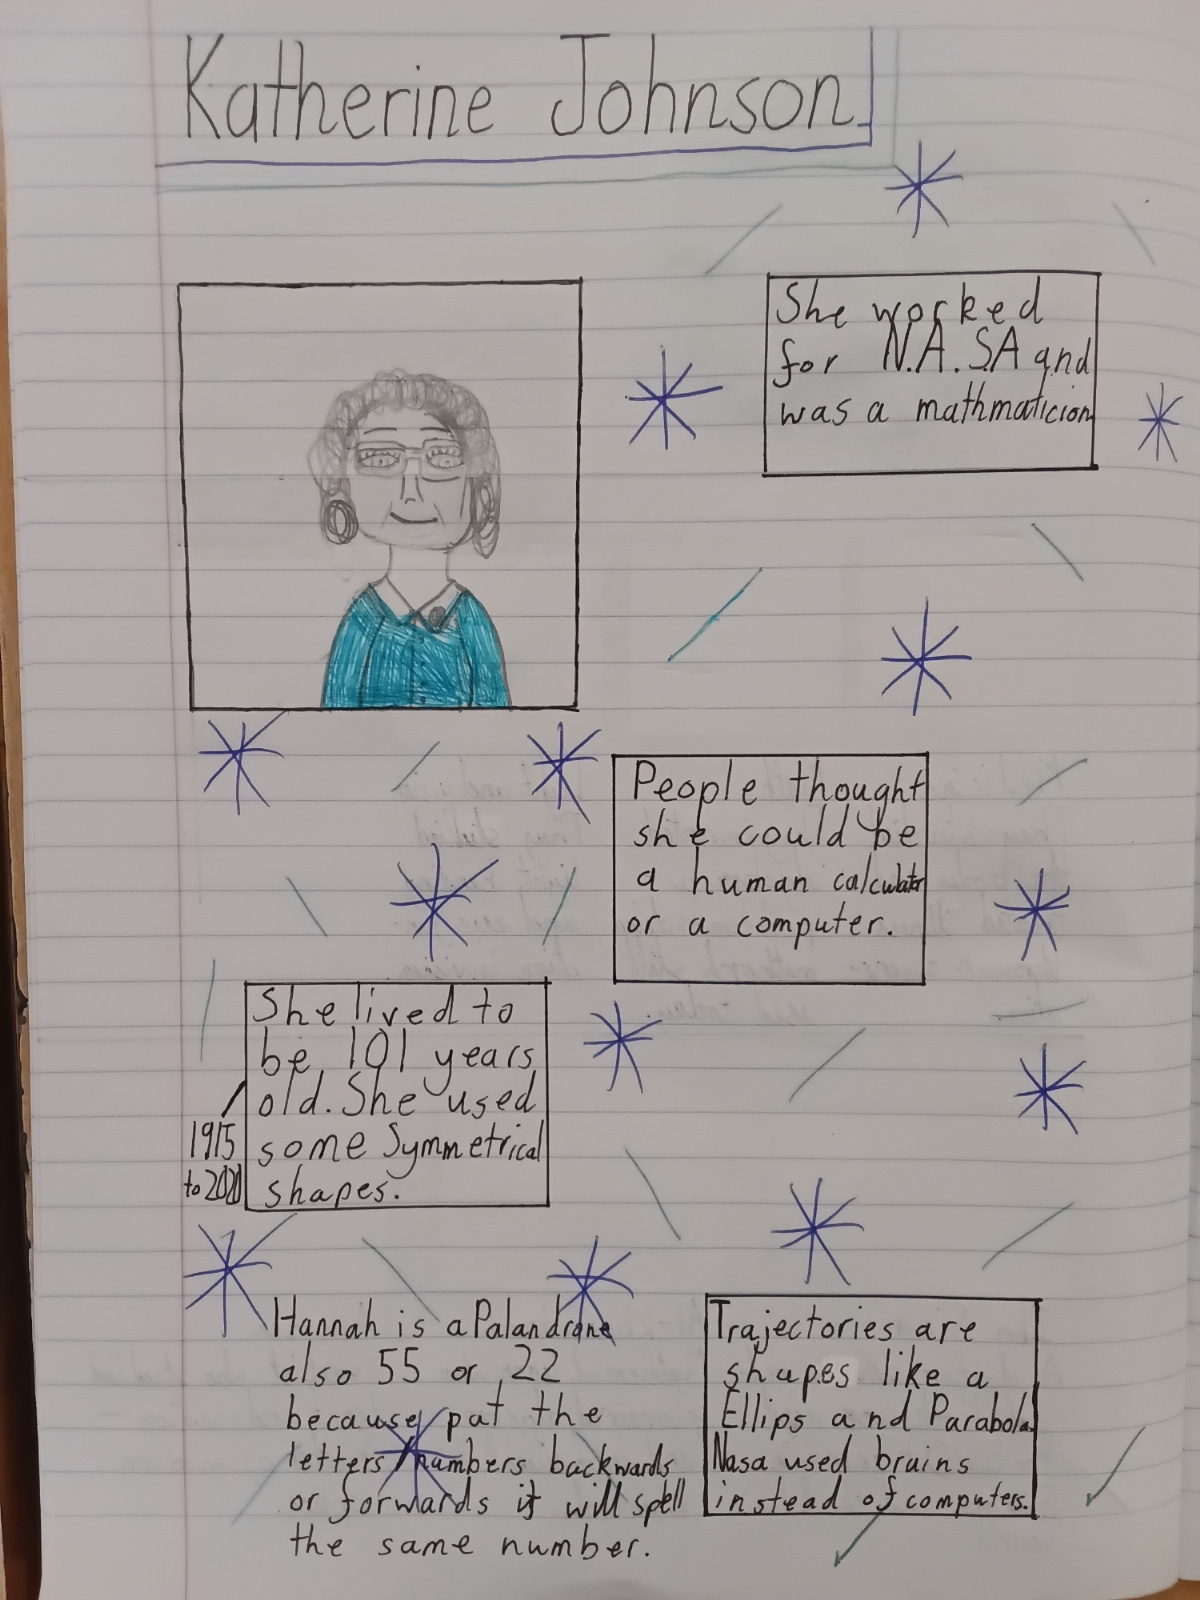 Katherine Johnson
She worked
for N.A.SA and
was a mathmaticion
People thought
she could be
a human calculator
or a computer.
She lived to
be 101 years
old. She used
some Symmetrical
shapes.
1915
to 2020
Hannah is a Palandrone
also 55 or 22
because put the
letters/numbers backwards
or forwards it will spell
the same number.
Trajectories are
shapes like a
Ellips and Parabola.
Nasa used brains
instead of computers.